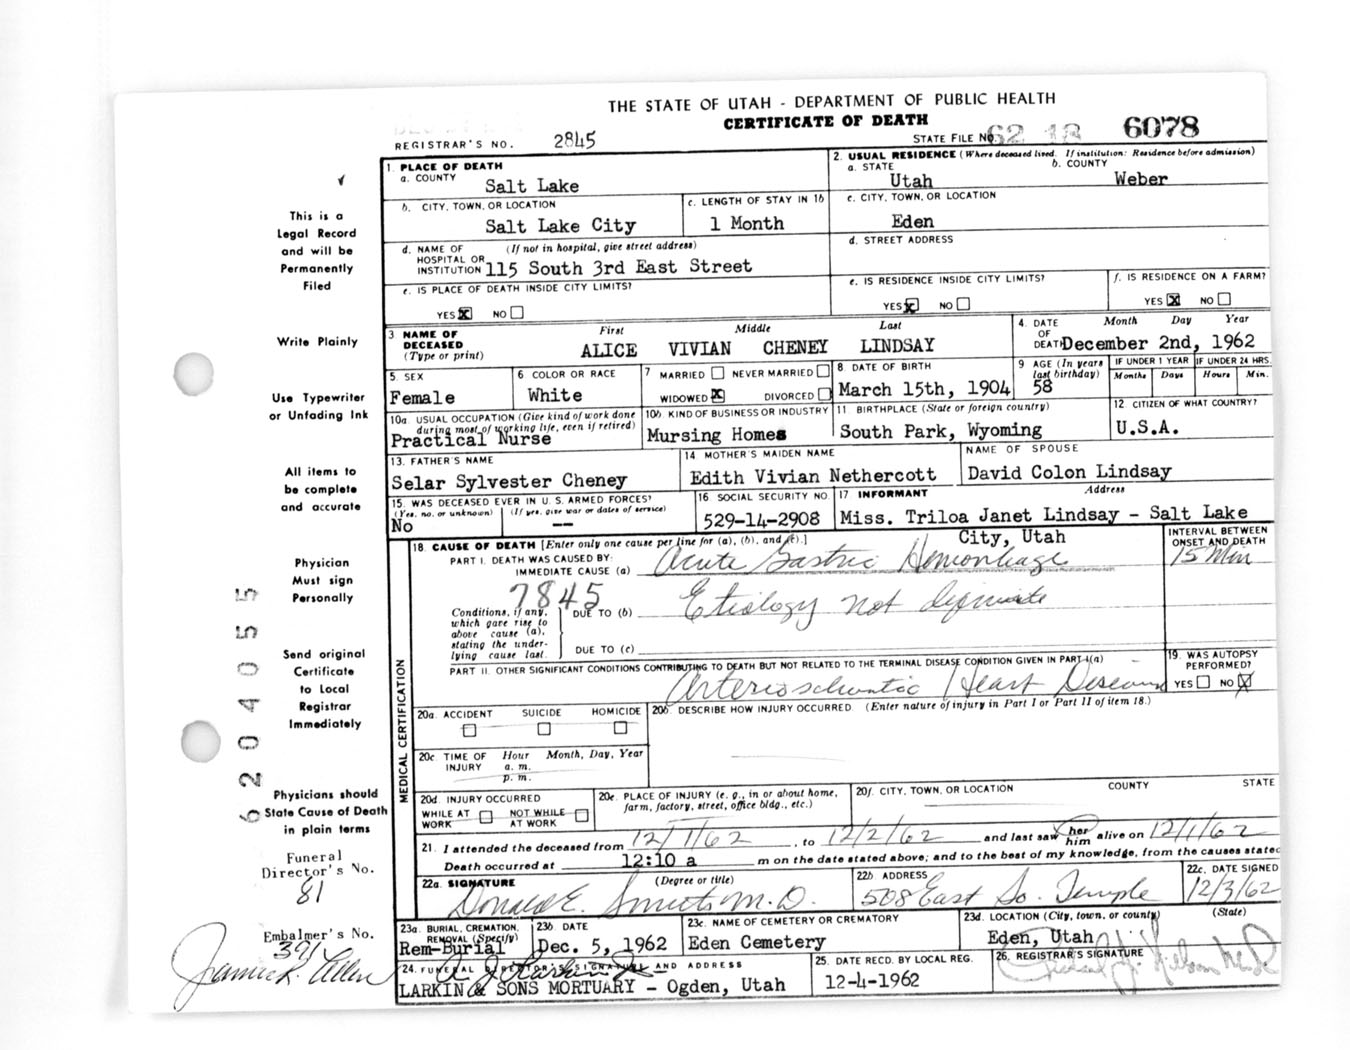 THE STATE OF UTAH - DEPARTMENT OF PUBLIC HEALTH
CERTIFICATE OF DEATH
REGISTRAR'S NO. 2845
STATE FILE NO. 62 18 6078
This is a
Legal Record
and will be
Permanently
Filed
Write Plainly
Use Typewriter
or Unfading Ink
All items to
be complete
and accurate
Physician
Must sign
Personally
Send original
Certificate
to Local
Registrar
Immediately
Physicians should
State Cause of Death
in plain terms
Funeral
Director's No.
81
Embalmer's No.
391
Allen
6204055
1. PLACE OF DEATH
a. COUNTY Salt Lake
2. USUAL RESIDENCE (Where deceased lived. If institution: Residence before admission)
a. STATE Utah b. COUNTY Weber
b. CITY, TOWN, OR LOCATION Salt Lake City
c. LENGTH OF STAY IN 1b 1 Month
c. CITY, TOWN, OR LOCATION Eden
d. NAME OF HOSPITAL OR INSTITUTION (If not in hospital, give street address) 115 South 3rd East Street
d. STREET ADDRESS
e. IS PLACE OF DEATH INSIDE CITY LIMITS? YES X NO
e. IS RESIDENCE INSIDE CITY LIMITS? YES X NO
f. IS RESIDENCE ON A FARM? YES X NO
3 NAME OF DECEASED (Type or print) First Middle Last
ALICE VIVIAN CHENEY LINDSAY
4. DATE OF DEATH Month Day Year December 2nd, 1962
5. SEX Female
6 COLOR OR RACE White
7 MARRIED NEVER MARRIED WIDOWED X DIVORCED
8 DATE OF BIRTH March 15th, 1904
9 AGE (In years last birthday) 58
IF UNDER 1 YEAR Months Days
IF UNDER 24 HRS. Hours Min.
10a. USUAL OCCUPATION (Give kind of work done during most of working life, even if retired) Practical Nurse
10b. KIND OF BUSINESS OR INDUSTRY Mursing Homes
11. BIRTHPLACE (State or foreign country) South Park, Wyoming
12 CITIZEN OF WHAT COUNTRY? U.S.A.
13. FATHER'S NAME Selar Sylvester Cheney
14 MOTHER'S MAIDEN NAME Edith Vivian Nethercott
NAME OF SPOUSE David Colon Lindsay
15. WAS DECEASED EVER IN U. S. ARMED FORCES? (Yes, no, or unknown) (If yes, give war or dates of service) No --
16. SOCIAL SECURITY NO. 529-14-2908
17 INFORMANT Address Miss. Triloa Janet Lindsay - Salt Lake City, Utah
MEDICAL CERTIFICATION
18. CAUSE OF DEATH [Enter only one cause per line for (a), (b), and (c).]
INTERVAL BETWEEN ONSET AND DEATH
PART I. DEATH WAS CAUSED BY:
IMMEDIATE CAUSE (a) Acute Gastric Hemorrhage 15 Min
7845
Conditions, if any, which gave rise to above cause (a), stating the underlying cause last.
DUE TO (b) Etiology not
DUE TO (c)
PART II. OTHER SIGNIFICANT CONDITIONS CONTRIBUTING TO DEATH BUT NOT RELATED TO THE TERMINAL DISEASE CONDITION GIVEN IN PART I(a)
Arteriosclerotic Heart Disease
19. WAS AUTOPSY PERFORMED? YES NO X
20a. ACCIDENT SUICIDE HOMICIDE
20b. DESCRIBE HOW INJURY OCCURRED. (Enter nature of injury in Part I or Part II of item 18.)
20c. TIME OF INJURY Hour Month, Day, Year a. m. p. m.
20d. INJURY OCCURRED WHILE AT WORK NOT WHILE AT WORK
20e. PLACE OF INJURY (e. g., in or about home, farm, factory, street, office bldg., etc.)
20f. CITY, TOWN, OR LOCATION COUNTY STATE
21. I attended the deceased from 12/1/62, to 12/2/62 and last saw her him alive on 12/1/62
Death occurred at 12:10 a m on the date stated above; and to the best of my knowledge, from the causes stated
22a. SIGNATURE (Degree or title) Donald E. M.D.
22b ADDRESS 508 East So. Temple
22c. DATE SIGNED 12/3/62
23a. BURIAL, CREMATION, REMOVAL (Specify) Rem-Burial
23b. DATE Dec. 5, 1962
23c. NAME OF CEMETERY OR CREMATORY Eden Cemetery
23d. LOCATION (City, town, or county) (State) Eden, Utah
24. FUNERAL DIRECTOR'S SIGNATURE AND ADDRESS
LARKIN & SONS MORTUARY - Ogden, Utah
25. DATE RECD. BY LOCAL REG. 12-4-1962
26. REGISTRAR'S SIGNATURE